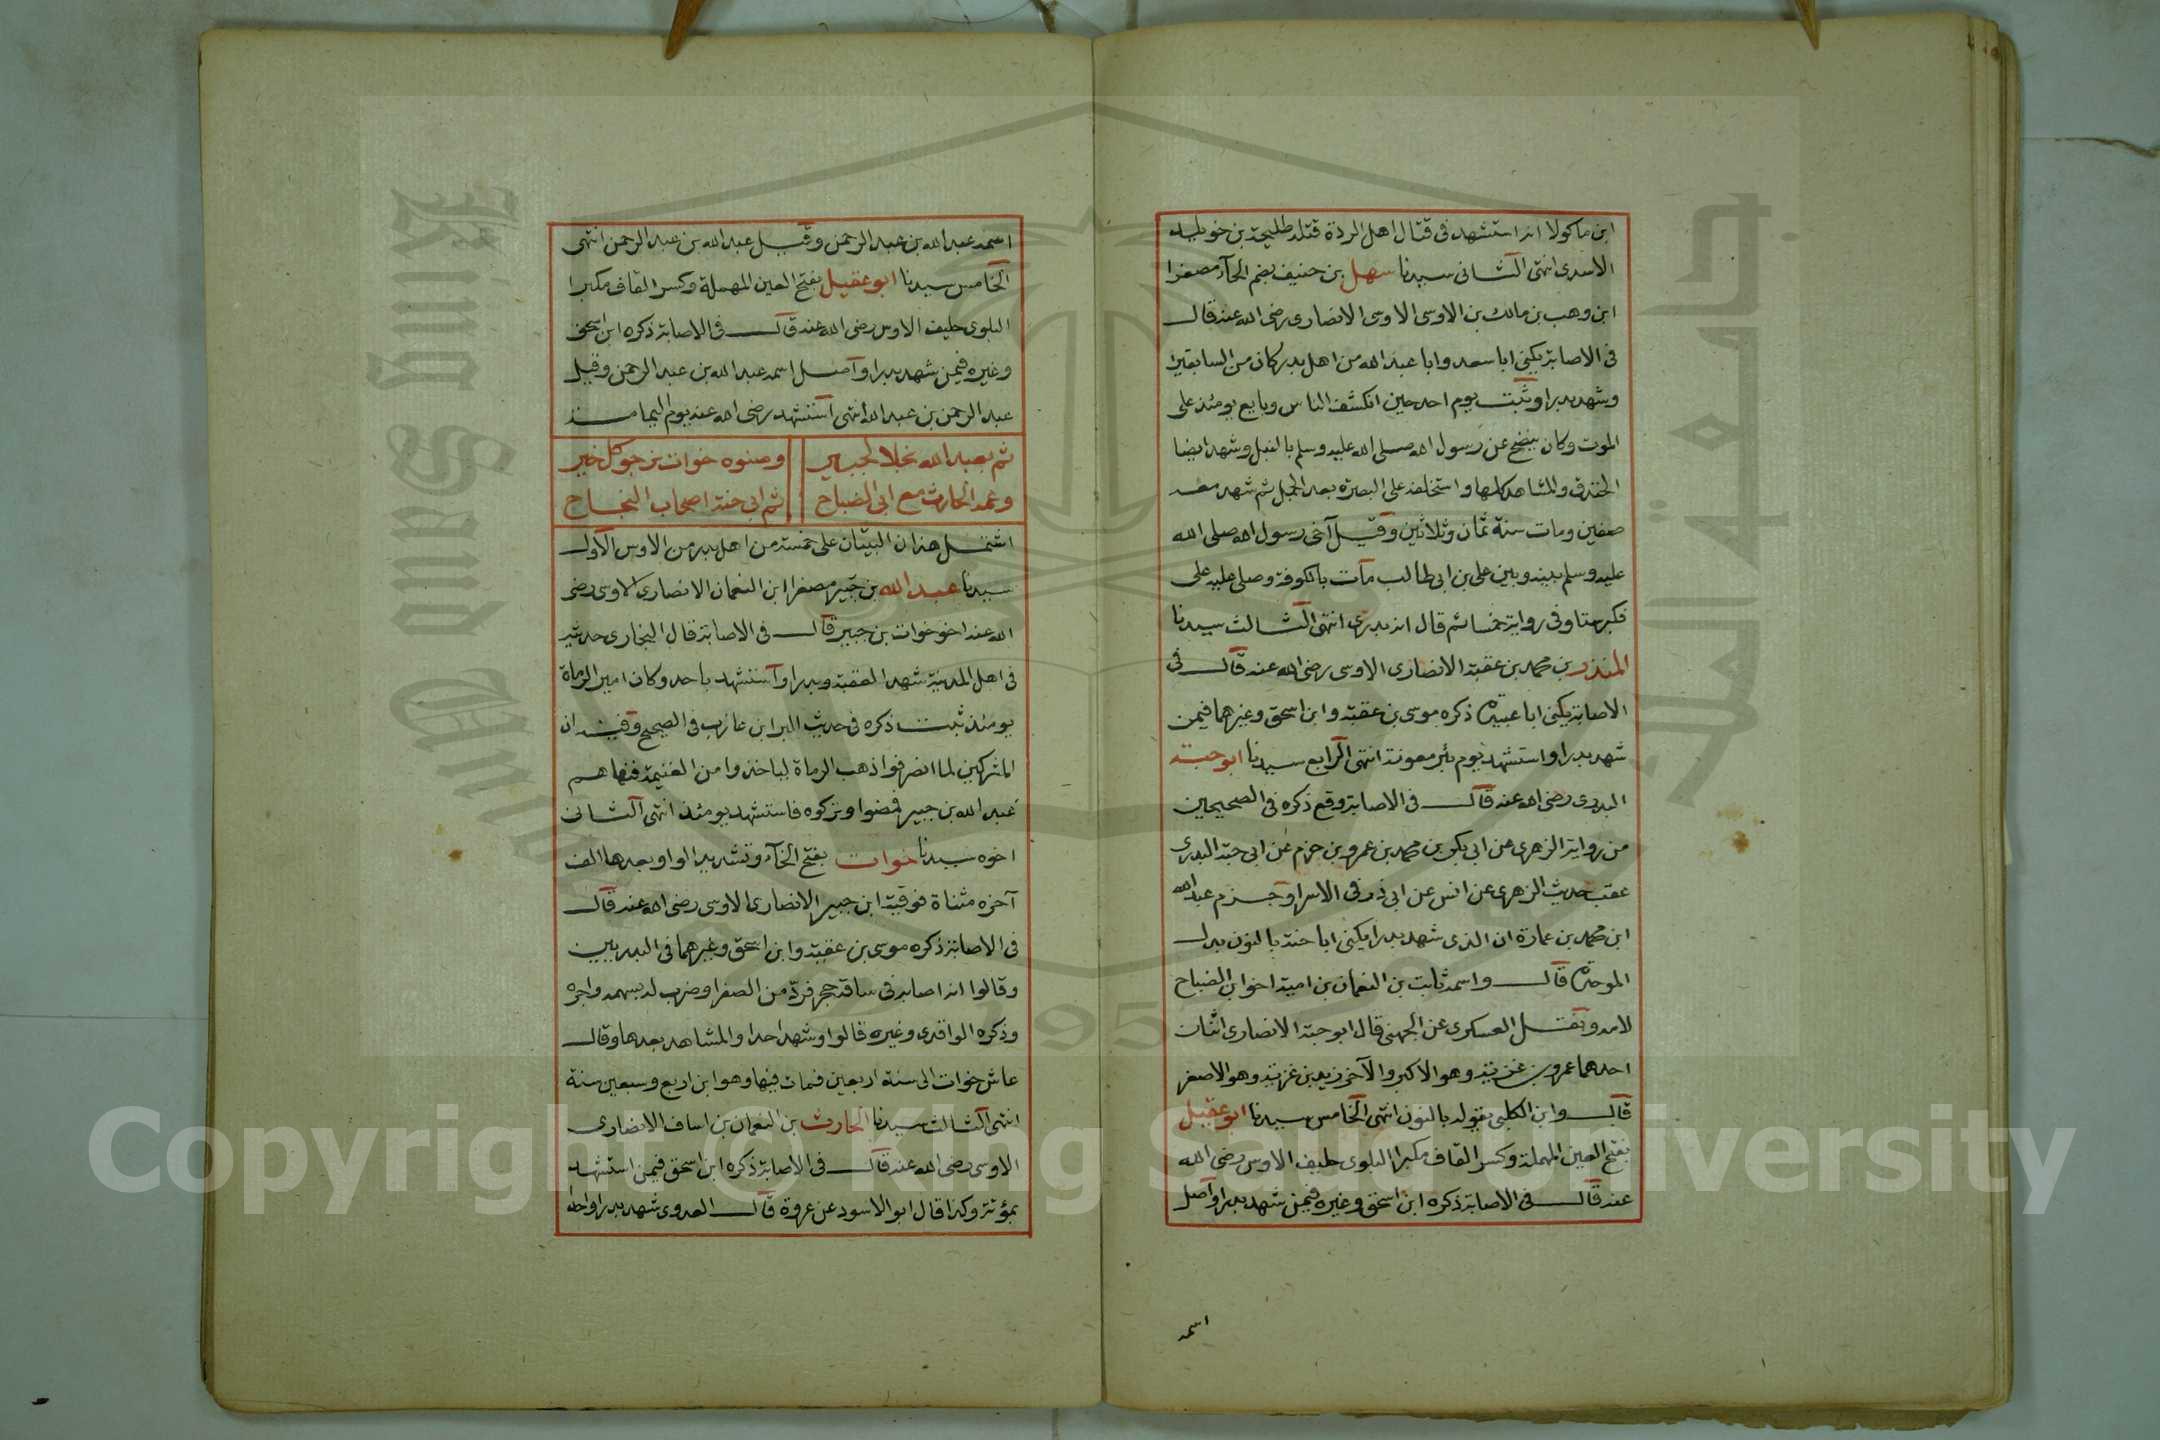 ابن ماكولا انه استشهد فى قتال اهل الردة قتله طليحة بن خويلد
الاسدى انتهى الثانى سيدنا سهل بن حنيف بضم الحآء مصغرا
ابن وهب بن مالك بن الاوسى الاوسى الانصارى رضى الله عنه قال
فى الاصابة يكنى ابا سعد وابا عبد الله من اهل بدر كان من السابقين
وشهد بدرا وثبت يوم احد حين انكشف الناس وبايع يومئذ على
الموت وكان ينضح عن رسول الله صلى الله عليه وسلم بالنبل وشهد ايضا
الخندق والمشاهد كلها واستخلفه على البصرة بعد الجمل ثم شهد معه
صفين ومات سنة ثمان وثلاثين وقيل آخى رسول الله صلى الله
عليه وسلم بينه وبين على بن ابى طالب مات بالكوفة وصلى عليه على
فكبر ستا وفى رواية خمسا ثم قال انه بدرى انتهى الثالث سيدنا
المنذر بن محمد بن عقبة الانصارى الاوسى رضى الله عنه قال فى
الاصابة يكنى ابا عبيدة ذكره موسى بن عقبة وابن اسحق وغيرهما فيمن
شهد بدرا واستشهد يوم بئر معونة انتهى الرابع سيدنا ابو حبة
البدرى رضى الله عنه قال فى الاصابة وقع ذكره فى الصحيحين
من رواية الزهرى عن ابى بكر بن محمد بن عمرو بن حزم عن ابى حبة البدرى
عقب حديث الزهرى عن انس عن ابى ذر فى الاسرا وجزم عبد الله
ابن محمد بن عمارة ان الذى شهد بدرا يكنى ابا حنة بالنون بدل
الموحدة قال واسمه ثابت بن النعمان بن امية اخو ابن الضباح
لامه ونقل العسكرى عن الجهنى قال ابو حبة الانصارى اثنان
احدهما عمرو بن غزية وهو الاكبر والآخر زيد بن غزية وهو الاصغر
قال وابن الكلبى يقوله بالنون انتهى الخامس سيدنا ابو عقيل
بفتح العين المهملة وكسر القاف مكبرا البلوى حليف الاوس رضى الله
عنه قال فى الاصابة ذكره ابن اسحق وغيره فيمن شهد بدرا واصل
اسمه
اسمه عبد الله بن عبد الرحمن وقيل عبد الله بن عبد الرحمن انتهى
الخامس سيدنا ابو عقيل بفتح العين المهملة وكسر القاف مكبرا
البلوى حليف الاوس رضى الله عنه قال فى الاصابة ذكره ابن اسحق
وغيره فيمن شهد بدرا وآصل اسمه عبد الله بن عبد الرحمن وقيل
عبد الرحمن بن عبد الله انتهى استشهد رضى الله عنه يوم اليمامة
ثم بعبد الله نجلا لجبير وصنوه خوات نرجو كل خير
وعمه الحارث مع ابى الضباح ثم ابى حنة اصحاب النجاح
اشتمل هذان البيتان على خمسة من اهل بدر من الاوس الاول
سيدنا عبد الله بن جبير مصغرا ابن النعمان الانصارى الاوسى رضى
الله عنه اخو خوات بن جبير قال فى الاصابة قال البخارى حديثه
فى اهل المدينة شهد العقبة وبدرا واستشهد باحد وكان امير الرماة
يومئذ ثبت ذكره فى حديث البرا بن عازب فى الصحيح وفيه ان
المشركين لما انصرفوا ذهب الرماة لياخذوا من الغنيمة فنهاهم
عبد الله بن جبير فمضوا وتركوه فاستشهد يومئذ انتهى الثانى
اخوه سيدنا خوات بفتح الخآء وتشديد الواو وبعدها الف
آخره مثناة فوقية ابن جبير الانصارى الاوسى رضى الله عنه قال
فى الاصابة ذكره موسى بن عقبة وابن اسحق وغيرهما فى البدريين
وقالوا انه اصابه فى ساقه حجر فردّ من الصفرا وضرب له بسهمه واجره
وذكره الواقدى وغيره قالوا وشهد احدا والمشاهد بعدها وقال
عاش خوات الى سنة اربعين فمات فيها وهو ابن اربع وسبعين سنة
انتهى الثالث سيدنا الحارث بن النعمان بن اساف الانصارى
الاوسى رضى الله عنه قال فى الاصابة ذكره ابن اسحق فيمن استشهد
بمؤتة وكذا قال ابو الاسود عن عروة قال العدوى شهد بدرا واحدا
Copyright © King Saud University